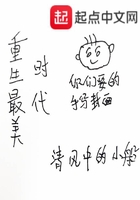 起点中文网
重生最美
时代
你们要的
手写封面
清风中的小船